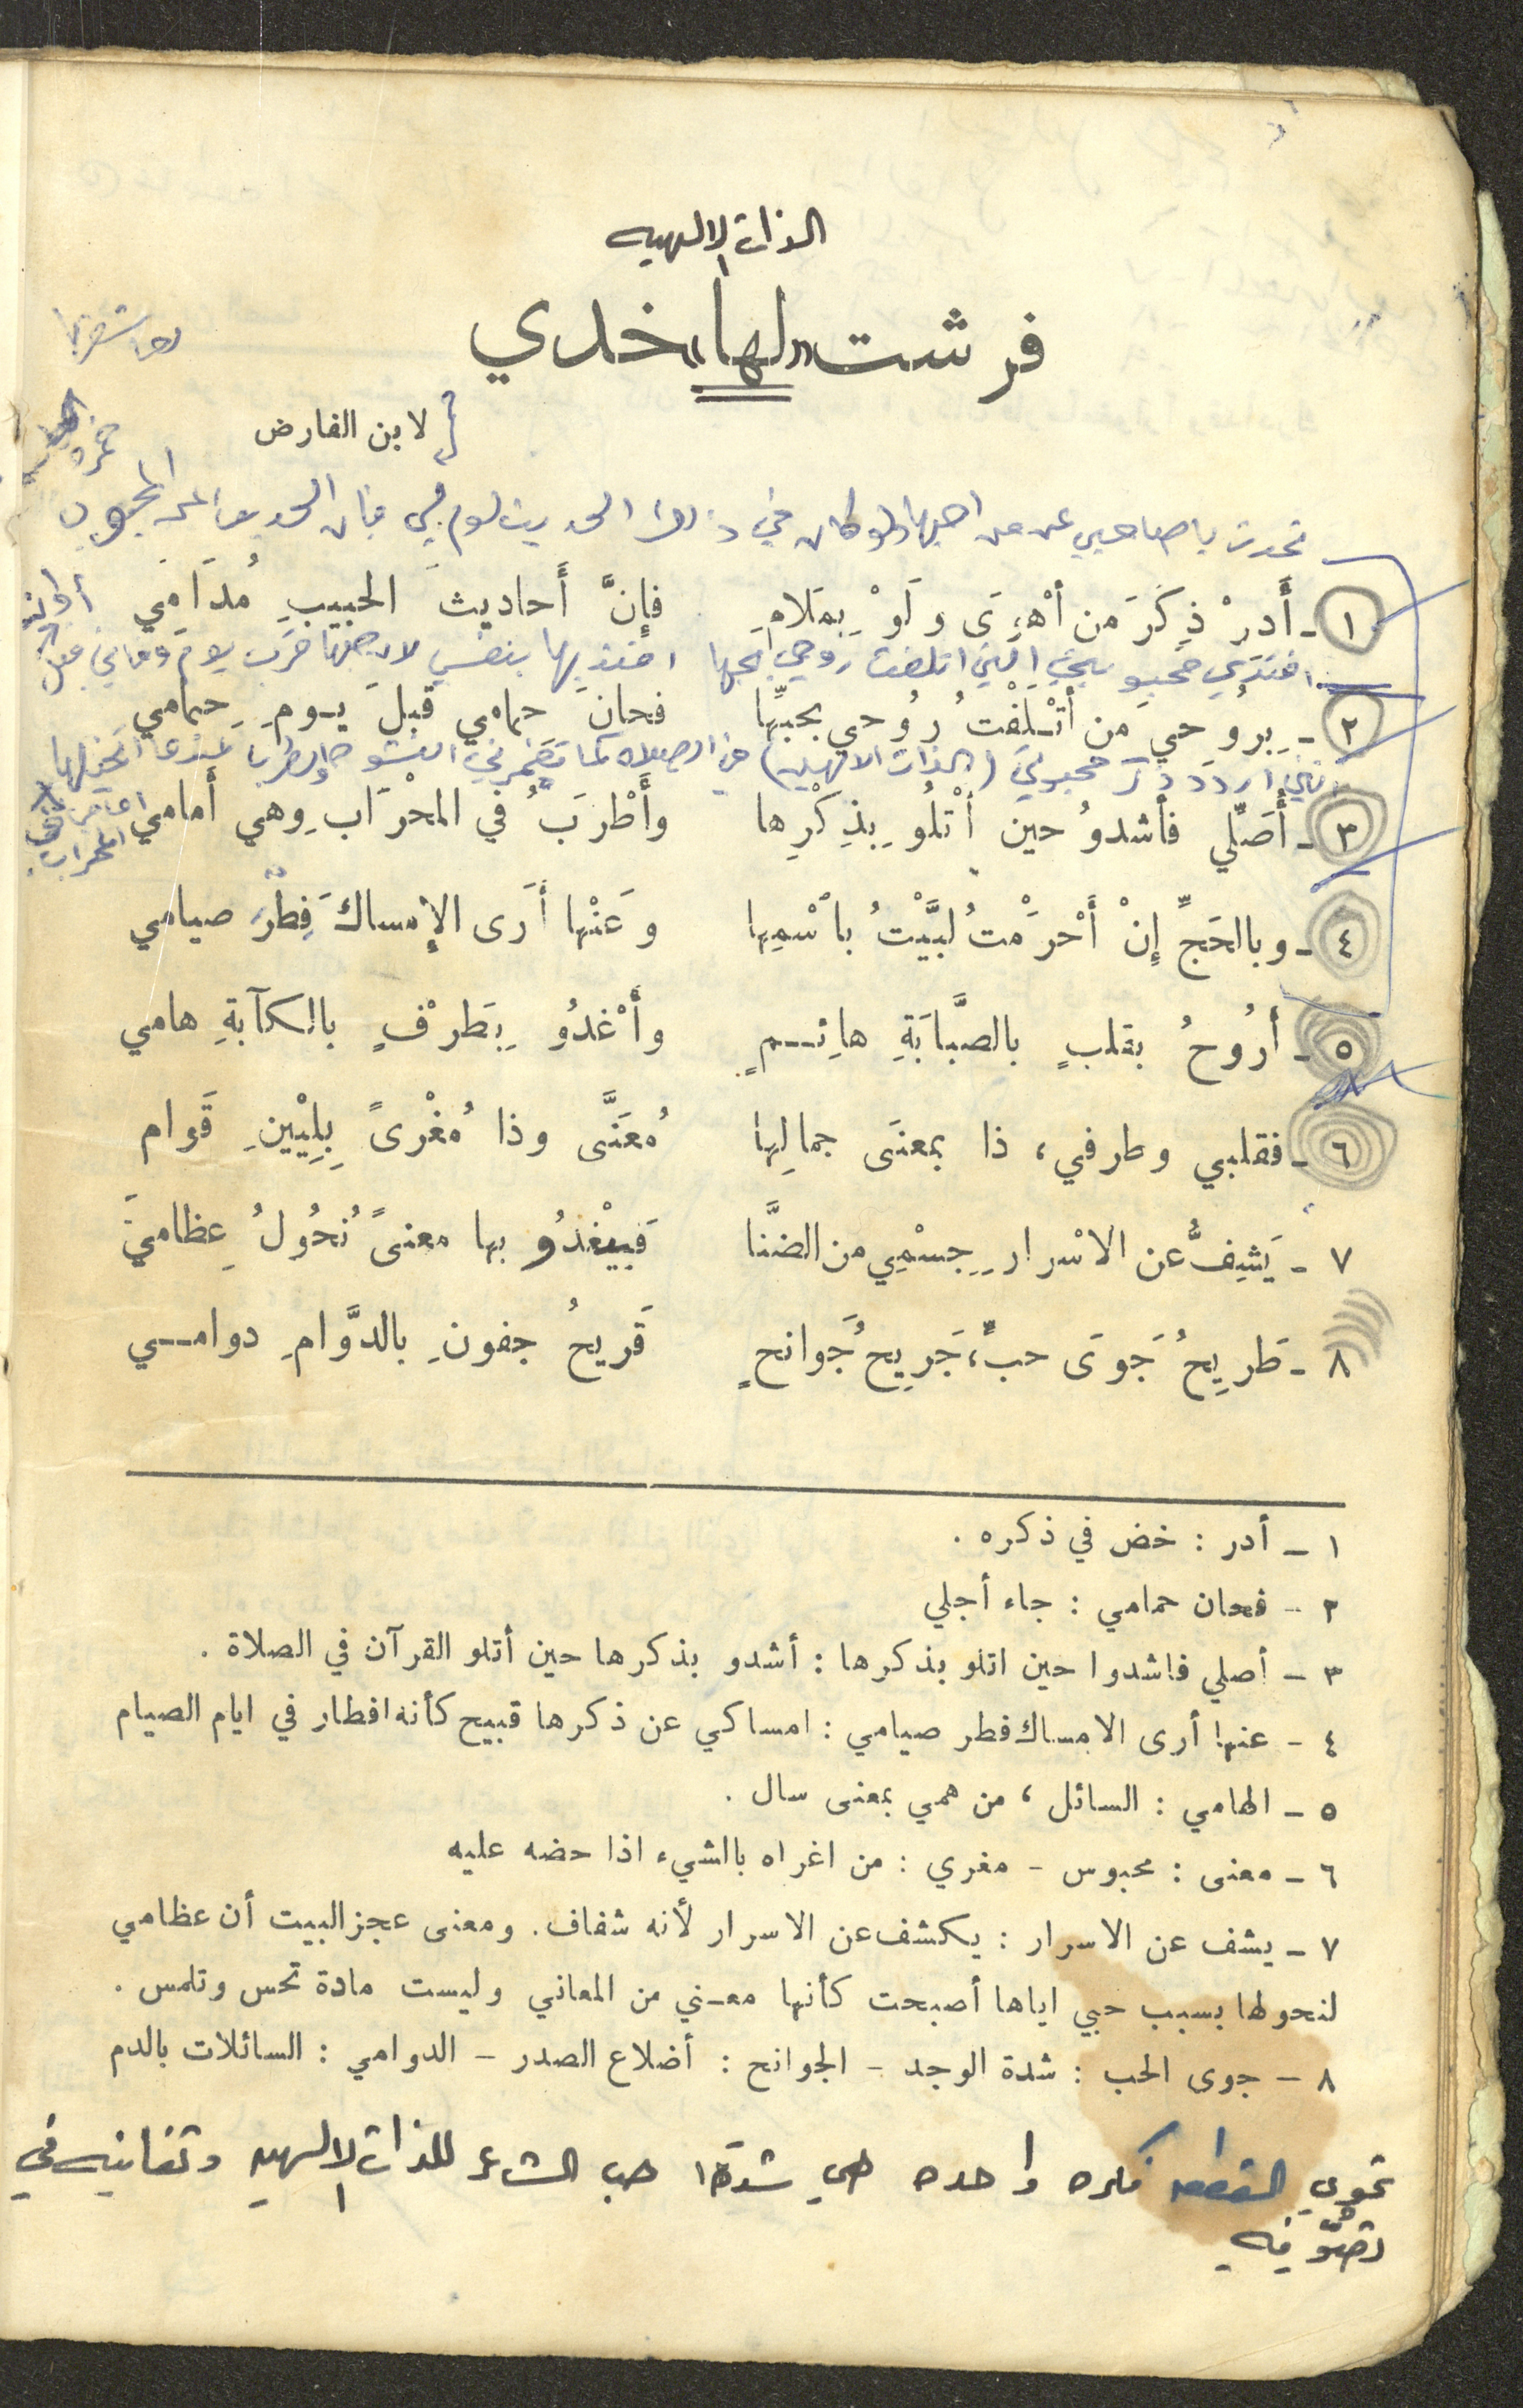 الذات الالهيه
فرشت «لها» خدي
لابن الفارض
خمره
تحدث يا صاحبي عن من احبها ولو كان في ذلك الحديث لوم لي فإن الحديث المحبوب
١ ـ أَدِرْ ذِكْرَ مَن أَهْوَى ولَوْ بِمَلامِ فإِنَّ أَحاديثَ الحبيبِ مُدَامِي
افتدي محبوبتي التي اتلفت روحي بحبها افتديها بنفسي لاجلها قرب يوم وفاتي قبل
٢ ـ بِرُوحي مَن أَتْلَفْتُ رُوحي بحبِّها فحانَ حِمامي قبلَ يومِ حِمامي
اردد ذكر محبوبتي (الذات الالهيه) في الصلاه كما
٣ ـ أُصَلِّي فأشدوُ حين أَتْلُو بِذِكْرِها وأَطْرَبُ في المحْرَابِ وهي أَمامي
المحراب
٤ ـ وبالحَجِّ إِنْ أَحْرَمْتُ لبَّيْتُ بٱسْمِها وعَنْها أَرَى الإِمساكَ فِطْرَ صيامي
٥ ـ أَرُوحُ بقلبٍ بالصَّبَابَةِ هائِــمٍ وأَغْدُو بِطَرْفٍ بالكآبةِ هامي
٦ ـ فقلبي وطرفي، ذا بمعنَى جمالِها مُعَنَّى وذا مُغْرىً بِلِيْنِ قَوام
٧ ـ يَشِفُّ عن الاسْرارِ جِسْمِي من الضَّنا فيَغْدُو بها معنىً نُحُولُ عِظامي
٨ ـ طَرِيحُ جَوَى حبٍّ، جَرِيحُ جَوانحٍ قَريحُ جفونِ بالدَّوَامِ دوامــي
١ ـ أدر : خض في ذكره .
٢ ـ فحان حمامي : جاء أجلي
٣ ـ أصلي فاشدوا حين اتلو بذكرها : أشدو بذكرها حين أتلو القرآن في الصلاة .
٤ ـ عنها أرى الامساك فطر صيامي : امساكي عن ذكرها قبيح كأنه افطار في ايام الصيام
٥ ـ الهامي : السائل ، من همي بمعنى سال .
٦ ـ معنى : محبوس ـ مغري : من اغراه بالشيء اذا حضه عليه
٧ ـ يشف عن الاسرار : يكشف عن الاسرار لأنه شفاف. ومعنى عجز البيت أن عظامي
لنحولها بسبب حبي اياها أصبحت كأنها معـني من المعاني وليست مادة تحس وتلمس .
٨ ـ جوى الحب : شدة الوجد ـ الجوانح : أضلاع الصدر ـ الدوامي : السائلات بالدم
تحوي القطعه فكره واحده هي شدة حب الشاعر للذات الالهيه وتفانيه في
تصوّفيه